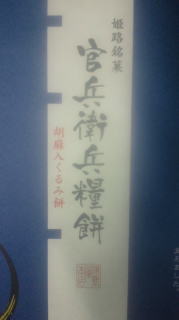 姫路銘菓
官兵衛兵糧餅
胡麻入くるみ餅